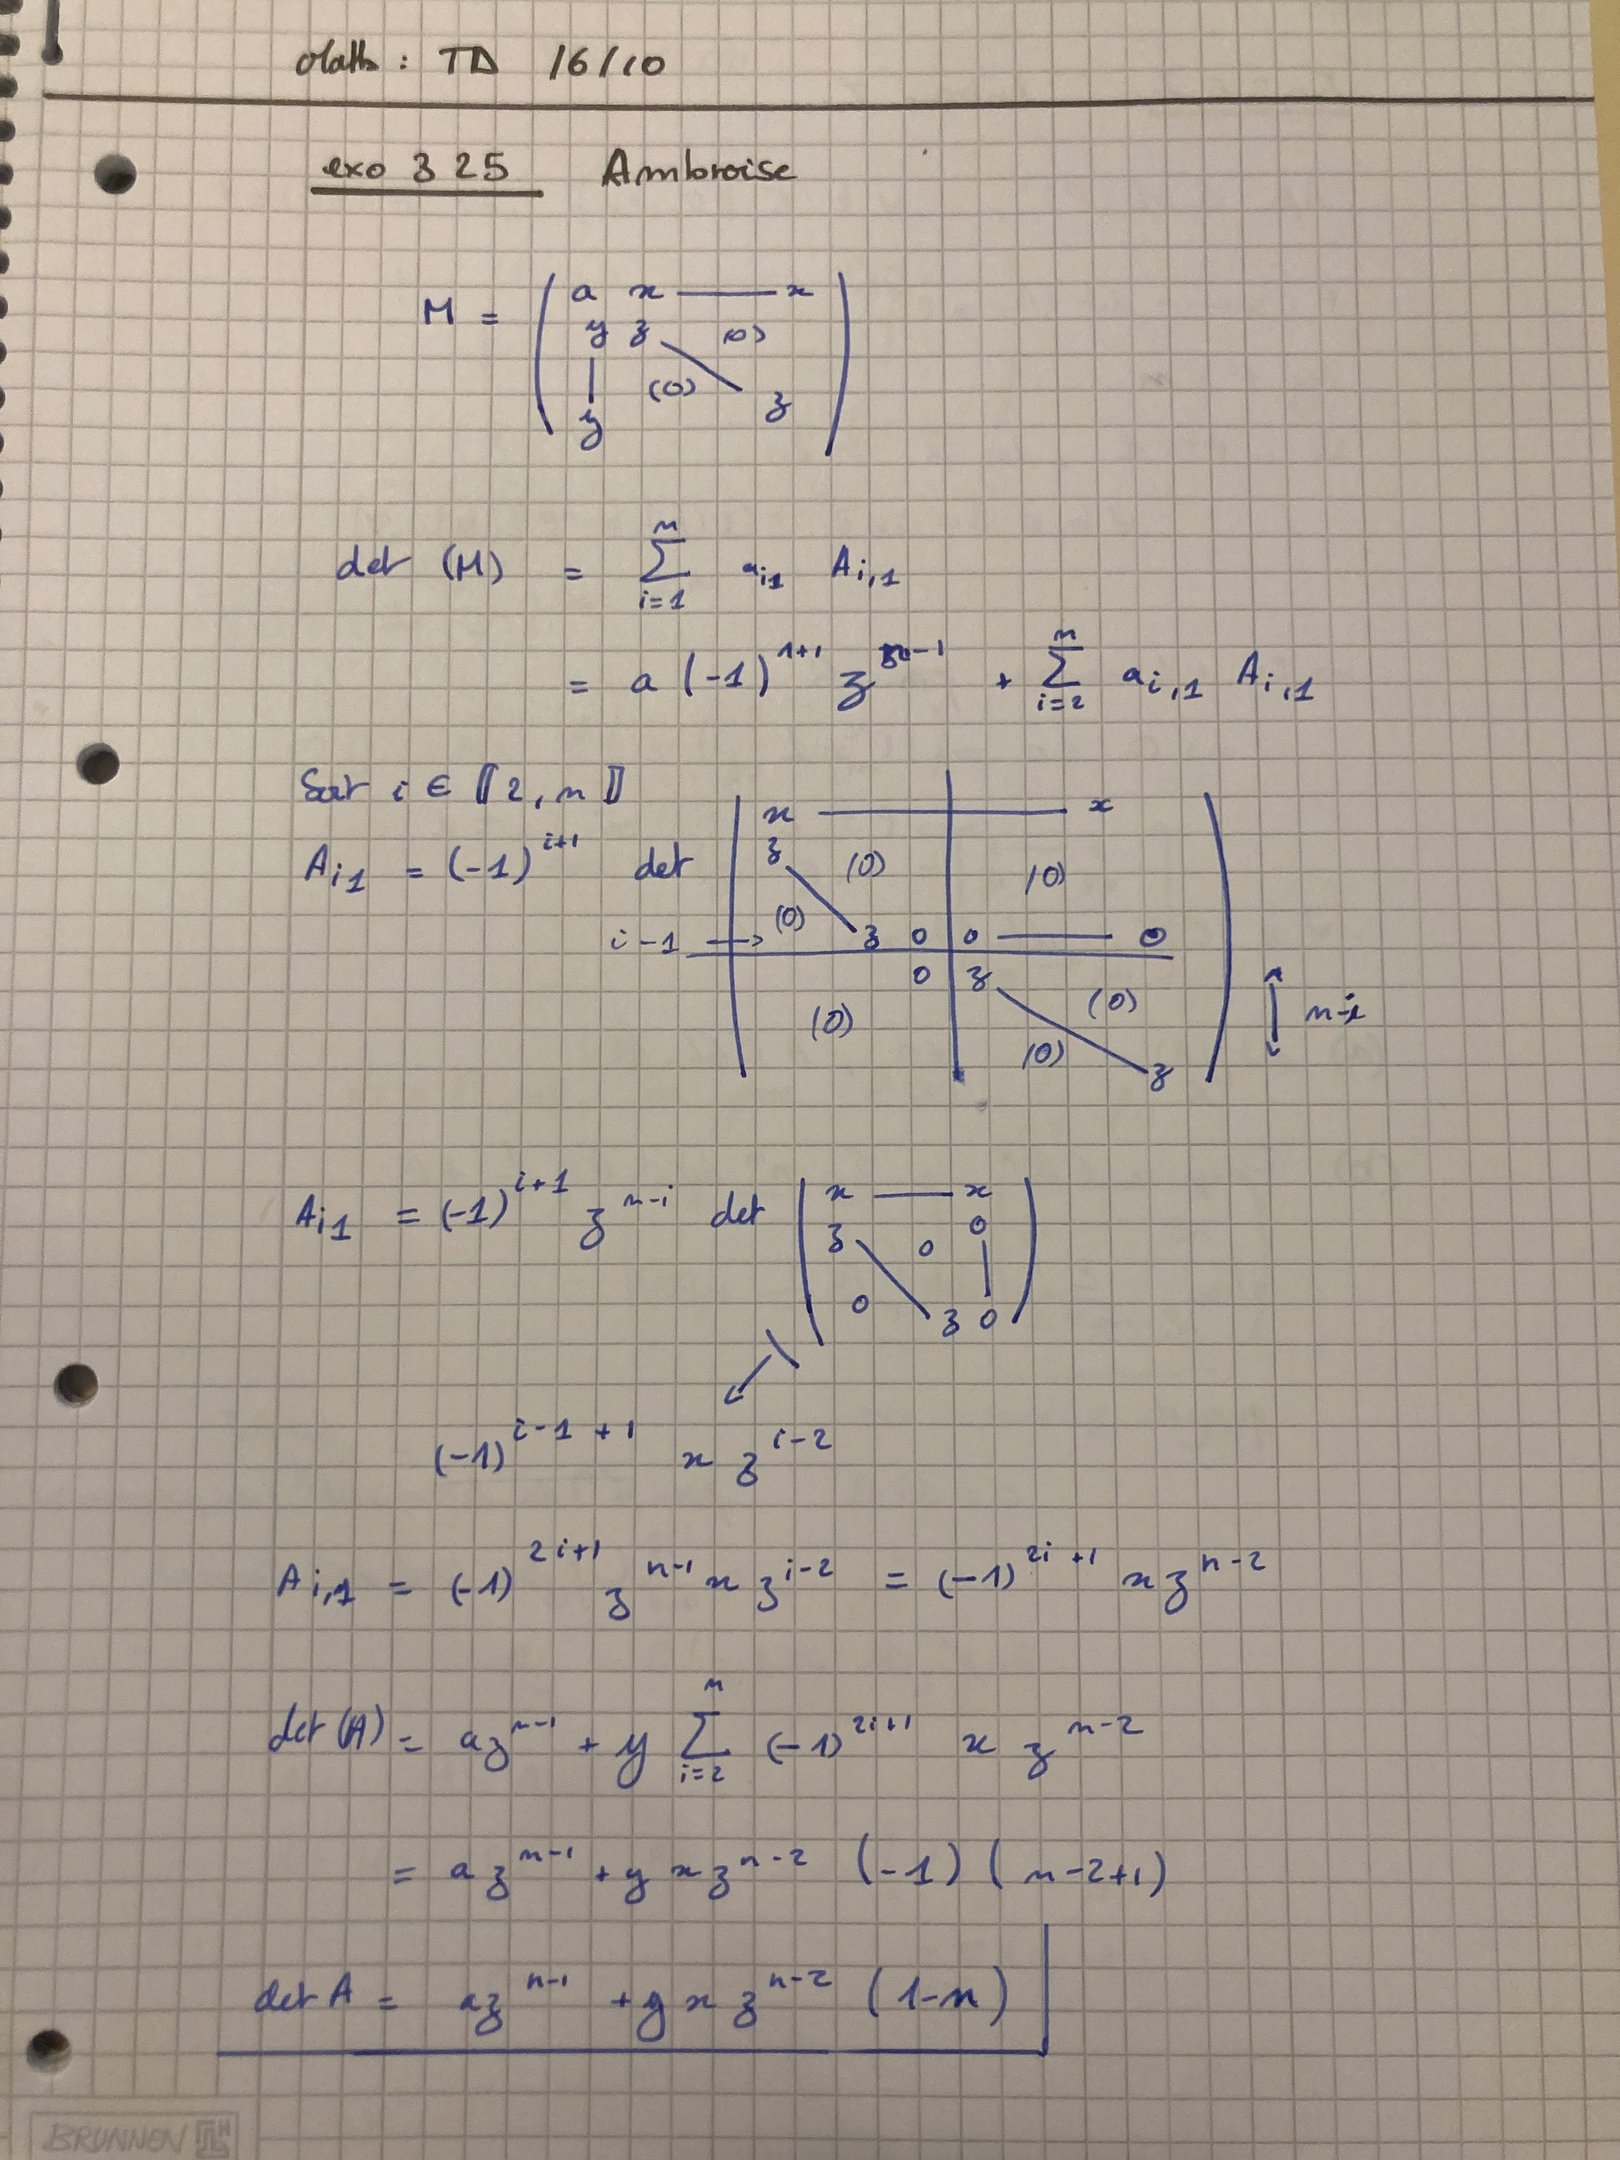 Math : TD 16/10
exo 325 Ambroise
M = ( a x —— x
y z (0)
| (0)
y z )
det (M) = ∑_{i=1}^{n} a_{i1} A_{i,1}
= a (-1)^{1+1} z^{n-1} + ∑_{i=2}^{n} a_{i,1} A_{i,1}
Soit i ∈ ⟦2, n⟧
A_{i1} = (-1)^{i+1} det | x —— x
z (0) (0)
(0)
i-1 → z 0 0 —— 0
0 z (0)
(0) (0) z | ↕ n-i
A_{i1} = (-1)^{i+1} z^{n-i} det ( x —— x
z 0 0
0 z 0 )
(-1)^{i-1+1} x z^{i-2}
A_{i,1} = (-1)^{2i+1} z^{n-1} x z^{i-2} = (-1)^{2i+1} x z^{n-2}
det (A) = az^{n-1} + y ∑_{i=2}^{n} (-1)^{2i+1} x z^{n-2}
= a z^{n-1} + y x z^{n-2} (-1) (n-2+1)
det A = az^{n-1} + y x z^{n-2} (1-n)
BRUNNEN